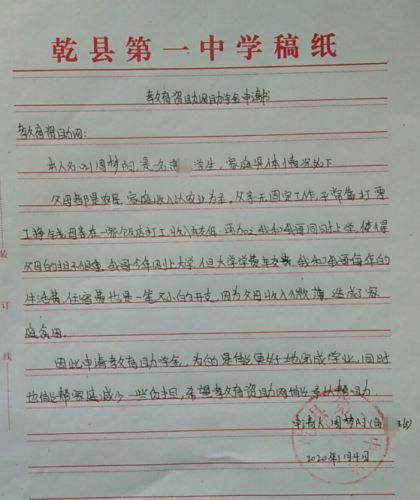 乾县第一中学稿纸
教育资助网助学金申请书
教育资助网:
本人名叫周梦 是一名 学生,家庭具体情况如下
父母都是农民,家庭收入以农业为主,父亲无固定工作,平常靠打零
工挣钱,母亲在一家饭店打工,收入 。再加上我和哥哥同时上学,使得
父母的担子很重,我哥今年刚上大学,但大学学费车 费,我和我哥每年的
生活费,住宿费也是一笔不小的开支,因为父母收入微薄,造成了家
庭贫困。
因此申请教育助学金,为的是能更好地完成学业,同时
也能帮家庭减少一些负担,希望教育资助网 给予帮助
申请人 周梦
2020年1月4日
装
订
线